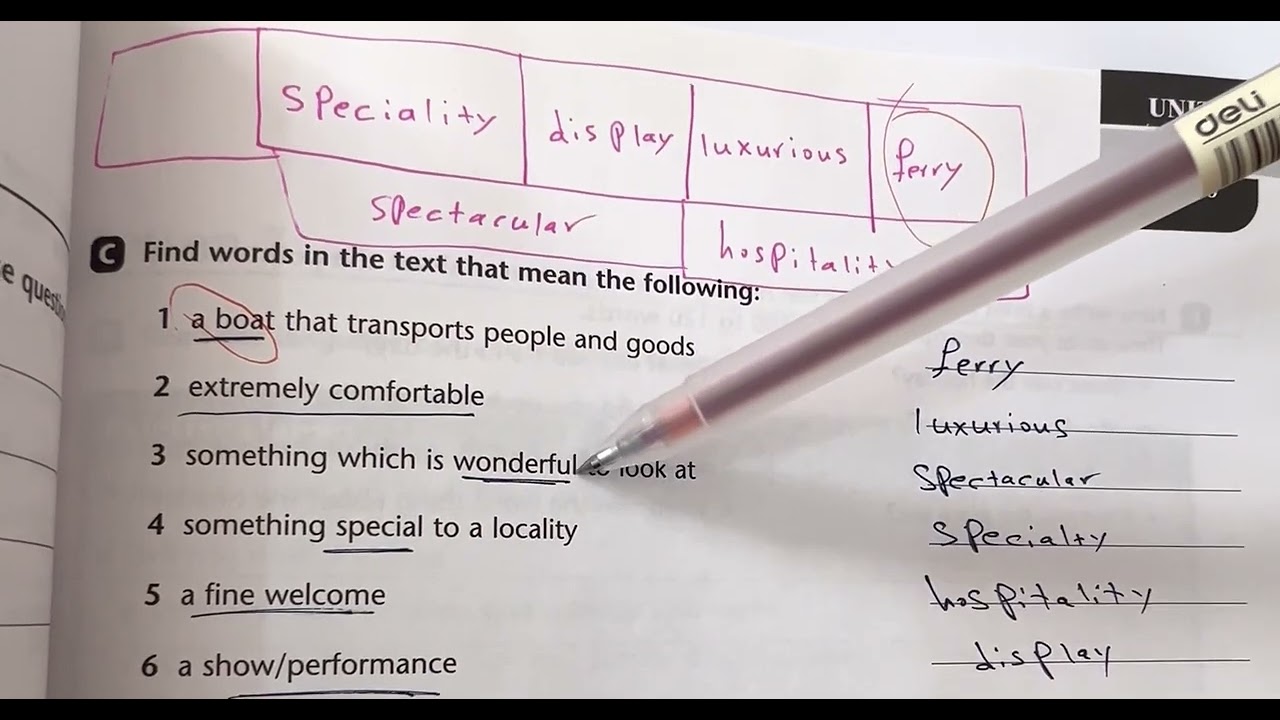 speciality display luxurious ferry
spectacular
UNI
deli
C Find words in the text that mean the following:
1 a boat that transports people and goods ferry
2 extremely comfortable luxurious
3 something which is wonderful look at spectacular
4 something special to a locality specialty
5 a fine welcome hospitality
6 a show/performance display